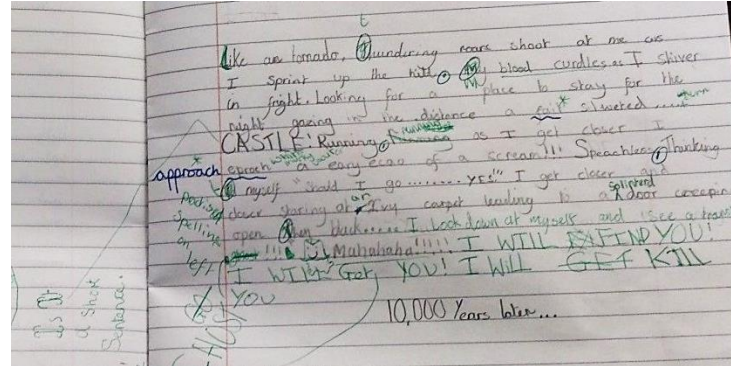 t
Like as tornado, thundering roars shoot at me as
I sprint up the hill. My blood curdles as I shiver
in fright. Looking for a place to stay for the
night gazing in the distance a
CASTLE! Running, running as I get closer I
approach eproch a eary ecao of a scream!!! Speachless, Thinking
to myself "should I go........ YES!" I get closer and
closer staring at an Ivy carpet leading to a door creepin
open then black..... I Look down at myself and See a
!!! Mahahaha!!!!! I WILL FIND YOU!
I WILL Get YOU! I WILL GET KILL
YOU
10,000 Years later...
Practise
spelling
on
left
Is it
a short
Sentence.